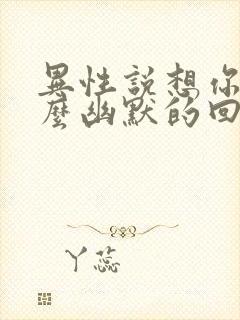 異性說想你
麼幽默的回
丫蕊